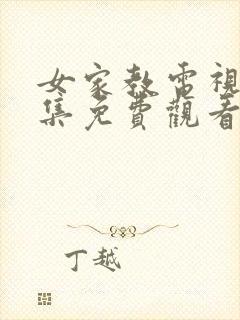 女家教電視
集免費觀看
丁越